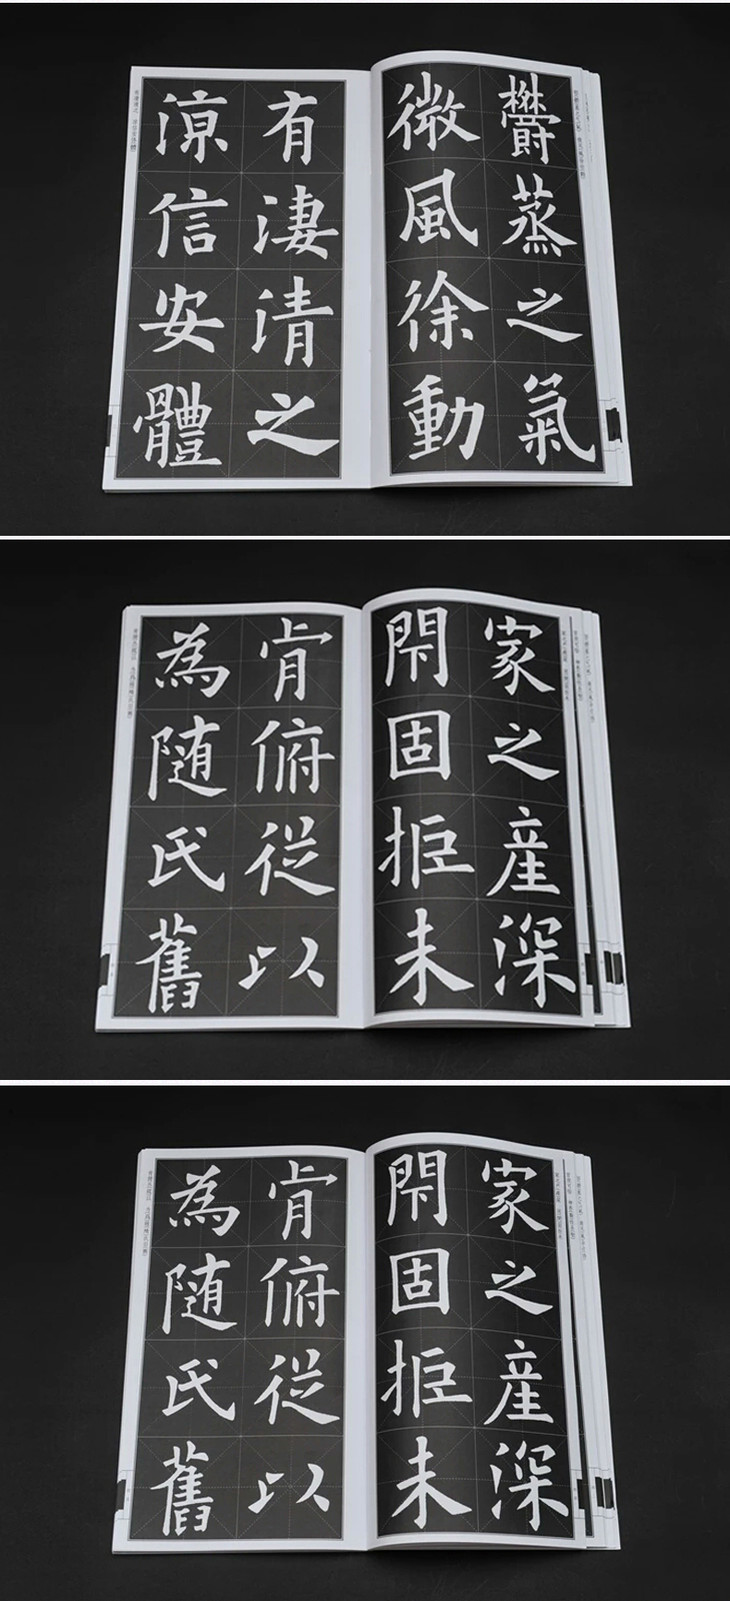 鬱蒸之氣
微風徐動
有淒清之
涼信安體
家之産深
閇固拒未
肯俯從以
為随氏舊
家之産深
閇固拒未
肯俯從以
為随氏舊